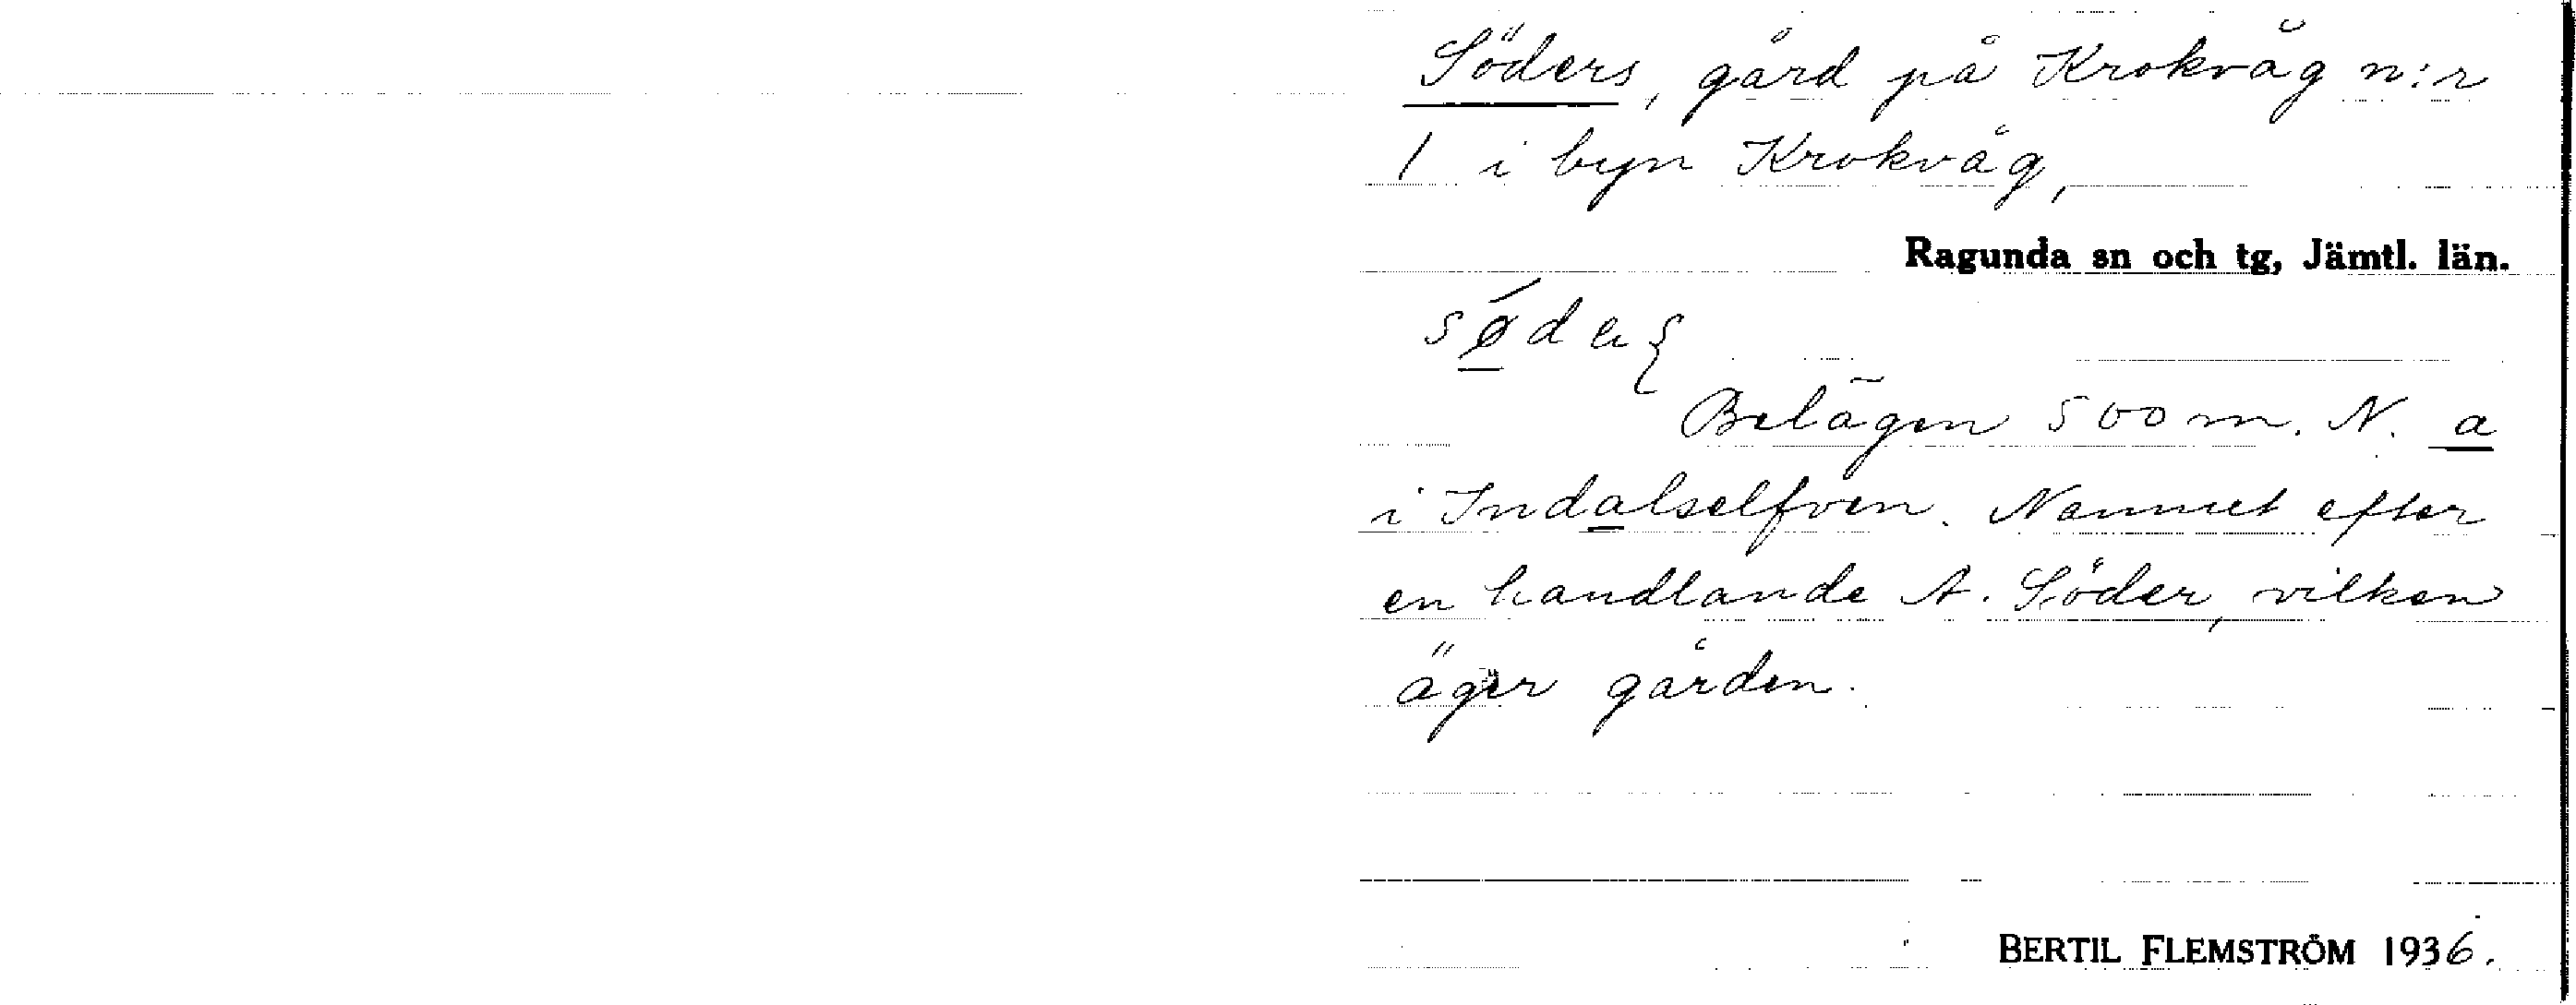 Söders, gård på Krokvåg n:r
1 i byn Krokvåg,
Ragunda sn och tg, Jämtl. län.
Belägen 500 m. N. a
i Indalselfven. Namnet efter
en handlande A. Söder, vilken
äger gården.
BERTIL FLEMSTRÖM 1936.